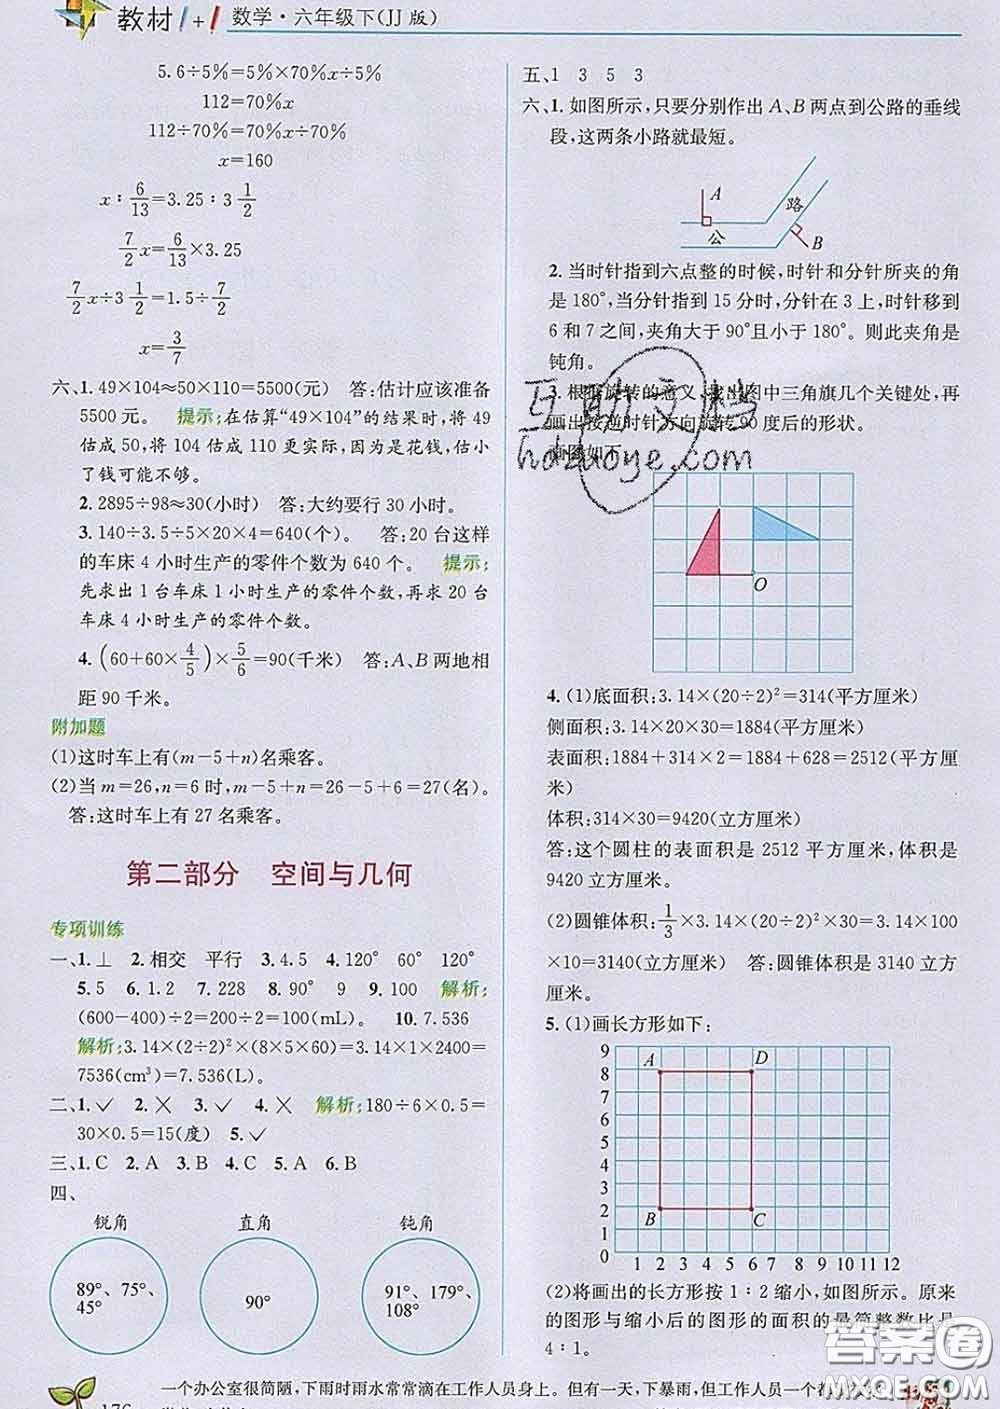 教材1+1 数学·六年级下(JJ版)
5.6÷5%=5%×70%x÷5%
112=70%x
112÷70%=70%x÷70%
x=160
x∶6/13=3.25∶3 1/2
7/2x=6/13×3.25
7/2x÷3 1/2=1.5÷7/2
x=3/7
六、1. 49×104≈50×110=5500(元) 答:估计应该准备
5500元。 提示:在估算“49×104”的结果时,将49
估成50,将104估成110更实际,因为是花钱,估小
了钱可能不够。
2. 2895÷98≈30(小时) 答:大约要行30小时。
3. 140÷3.5÷5×20×4=640(个)。 答:20台这样
的车床4小时生产的零件个数为640个。 提示:
先求出1台车床1小时生产的零件个数,再求20台
车床4小时生产的零件个数。
4. (60+60×4/5)×5/6=90(千米) 答:A、B两地相
距90千米。
附加题
(1)这时车上有(m-5+n)名乘客。
(2)当m=26,n=6时,m-5+n=26-5+6=27(名)。
答:这时车上有27名乘客。
第二部分 空间与几何
专项训练
一、1.⊥ 2.相交 平行 3. 4.5 4. 120° 60° 120°
5. 5 6. 1.2 7. 228 8. 90° 9 9. 100 解析:
(600-400)÷2=200÷2=100(mL)。 10. 7.536
解析:3.14×(2÷2)²×(8×5×60)=3.14×1×2400=
7536(cm³)=7.536(L)。
二、1.✓ 2.╳ 3.✓ 4.╳ 解析:180÷6×0.5=
30×0.5=15(度) 5.✓
三、1.C 2.A 3.B 4.C 5.A 6.B
四、
锐角 直角 钝角
89°、75°、
45°
90°
91°、179°、
108°
五、1 3 5 3
六、1.如图所示,只要分别作出A、B两点到公路的垂线
段,这两条小路就最短。
A
公
路
B
2.当时针指到六点整的时候,时针和分针所夹的角
是180°,当分针指到15分时,分针在3上,时针移到
6和7之间,夹角大于90°且小于180°。则此夹角是
钝角。
3.根据旋转的意义,找出图中三角旗几个关键处,再
画出按逆时针方向旋转90度后的形状。
画图如下:
O
4.(1)底面积:3.14×(20÷2)²=314(平方厘米)
侧面积:3.14×20×30=1884(平方厘米)
表面积:1884+314×2=1884+628=2512(平方厘
米)
体积:314×30=9420(立方厘米)
答:这个圆柱的表面积是2512平方厘米,体积是
9420立方厘米。
(2)圆锥体积:1/3×3.14×(20÷2)²×30=3.14×100
×10=3140(立方厘米) 答:圆锥体积是3140立方
厘米。
5.(1)画长方形如下:
9
8
7
6
5
4
3
2
1
0
A D
B C
1 2 3 4 5 6 7 8 9 10 11 12
(2)将画出的长方形按1∶2缩小,如图所示。原来
的图形与缩小后的图形的面积的最简整数比是
4∶1。
互助文档
hdzuoye.com
答案圈
一个办公室很简陋,下雨时雨水常常滴在工作人员身上。但有一天,下暴雨,但工作人员一个都
176